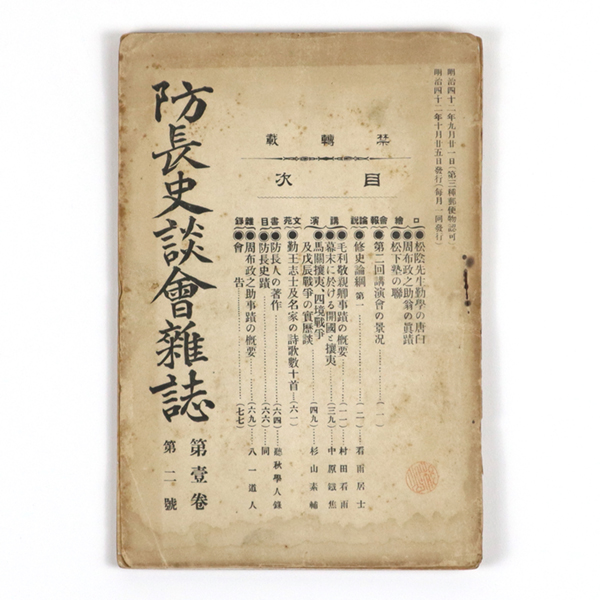 明治四十二年九月廿一日(第三種郵便物認可)
明治四十二年十月廿五日發行(每月一回發行)
禁轉載
目次
口繪
●松陰先生勤學の唐臼
●周布政之助翁の眞蹟
●松下塾の聯
會報
●第二回講演會の景况……(一)
論説
●修史論綱 第一……(二)看雨居士
講演
●毛利敬親卿事蹟の概要……(一一)村田看雨
●幕末に於ける開國と攘夷……(三九)中原邁焦
●馬關攘夷、四境戰爭
及戊辰戰爭の實歷談……(四九)杉山素輔
文苑
●勤王志士及名家の詩歌數十首……(六一)
書目
●防長人の著作……(六四)聽秋學人錄
●防長史蹟……(六六)同
雜錄
●周布政之助事蹟の概要……(六九)八一道人
●會告……(七七)
防長史談會雜誌
第壹卷
第二號